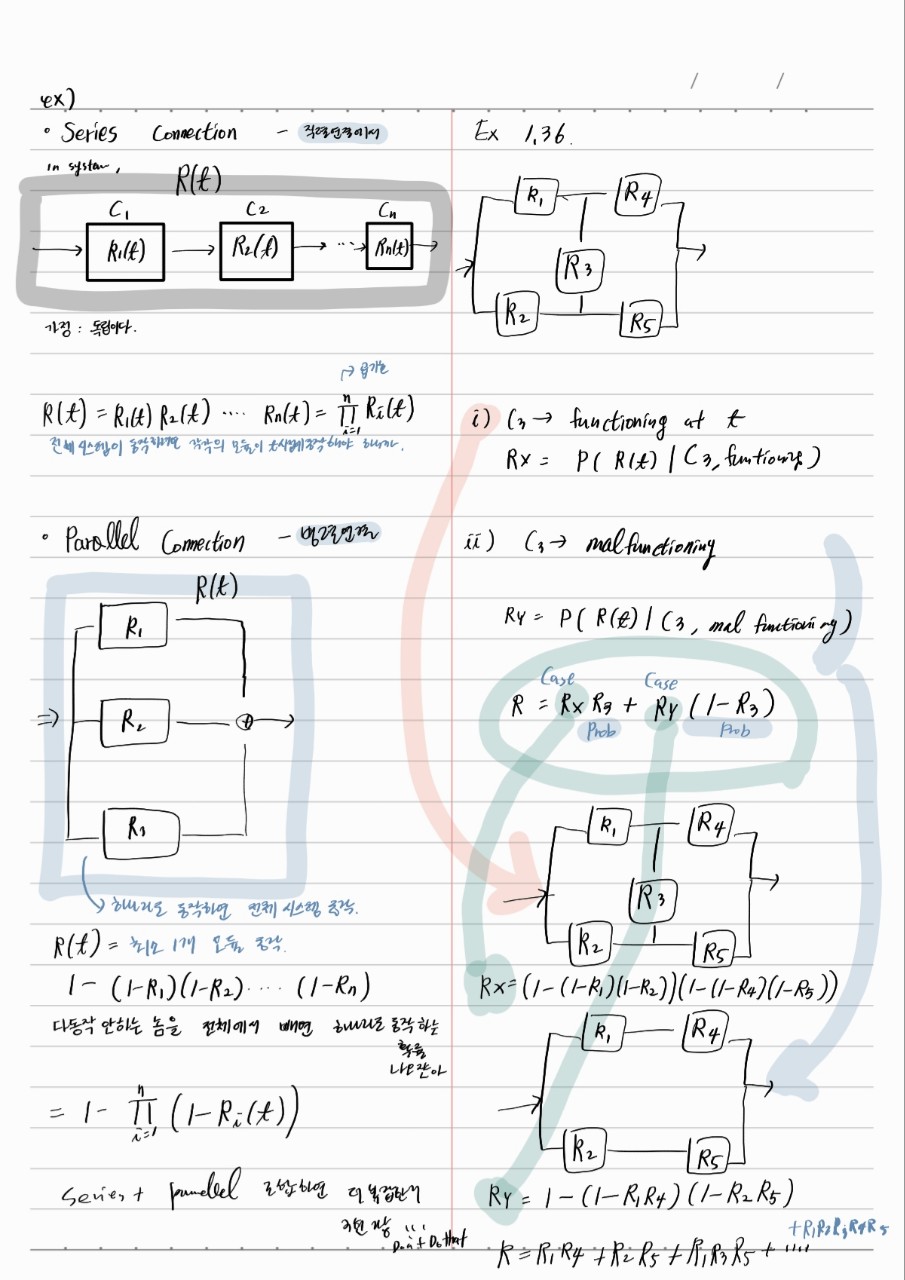 ex)
• Series Connection - 직렬연결에서
in system,
R(t)
C1 C2 Cn
R1(t) R2(t) ... Rn(t)
가정 : 독립이다.
R(t) = R1(t) R2(t) .... Rn(t) = ∏_{i=1}^{n} Ri(t)
전체 시스템이 동작하려면 각각의 모듈이 동작해야 하니까.
• Parallel Connection - 병렬연결
R(t)
R1
R2
R3
하나라도 동작하면 전체 시스템 동작.
R(t) = 최소 1개 모듈 동작.
1 - (1-R1)(1-R2) .... (1-Rn)
다동작 안하는 놈을 전체에서 빼면 하나라도 동작하는
확률
= 1 - ∏_{i=1}^{n} (1-Ri(t))
Series + parallel 조합하면 더 복잡한
Don't Do that
Ex 1.36.
R1 R4
R3
R2 R5
i) C3 → functioning at t
Rx = P( R(t) | C3, funtioning )
ii) C3 → malfunctioning
Ry = P( R(t) | C3, mal functioning )
Case Case
R = Rx R3 + Ry (1-R3)
Prob Prob
R1 R4
R3
R2 R5
Rx = (1-(1-R1)(1-R2))(1-(1-R4)(1-R5))
R1 R4
R2 R5
Ry = 1-(1-R1R4)(1-R2R5)
+R1R2R3R4R5
R = R1R4 + R2R5 + R1R3R5 + ....